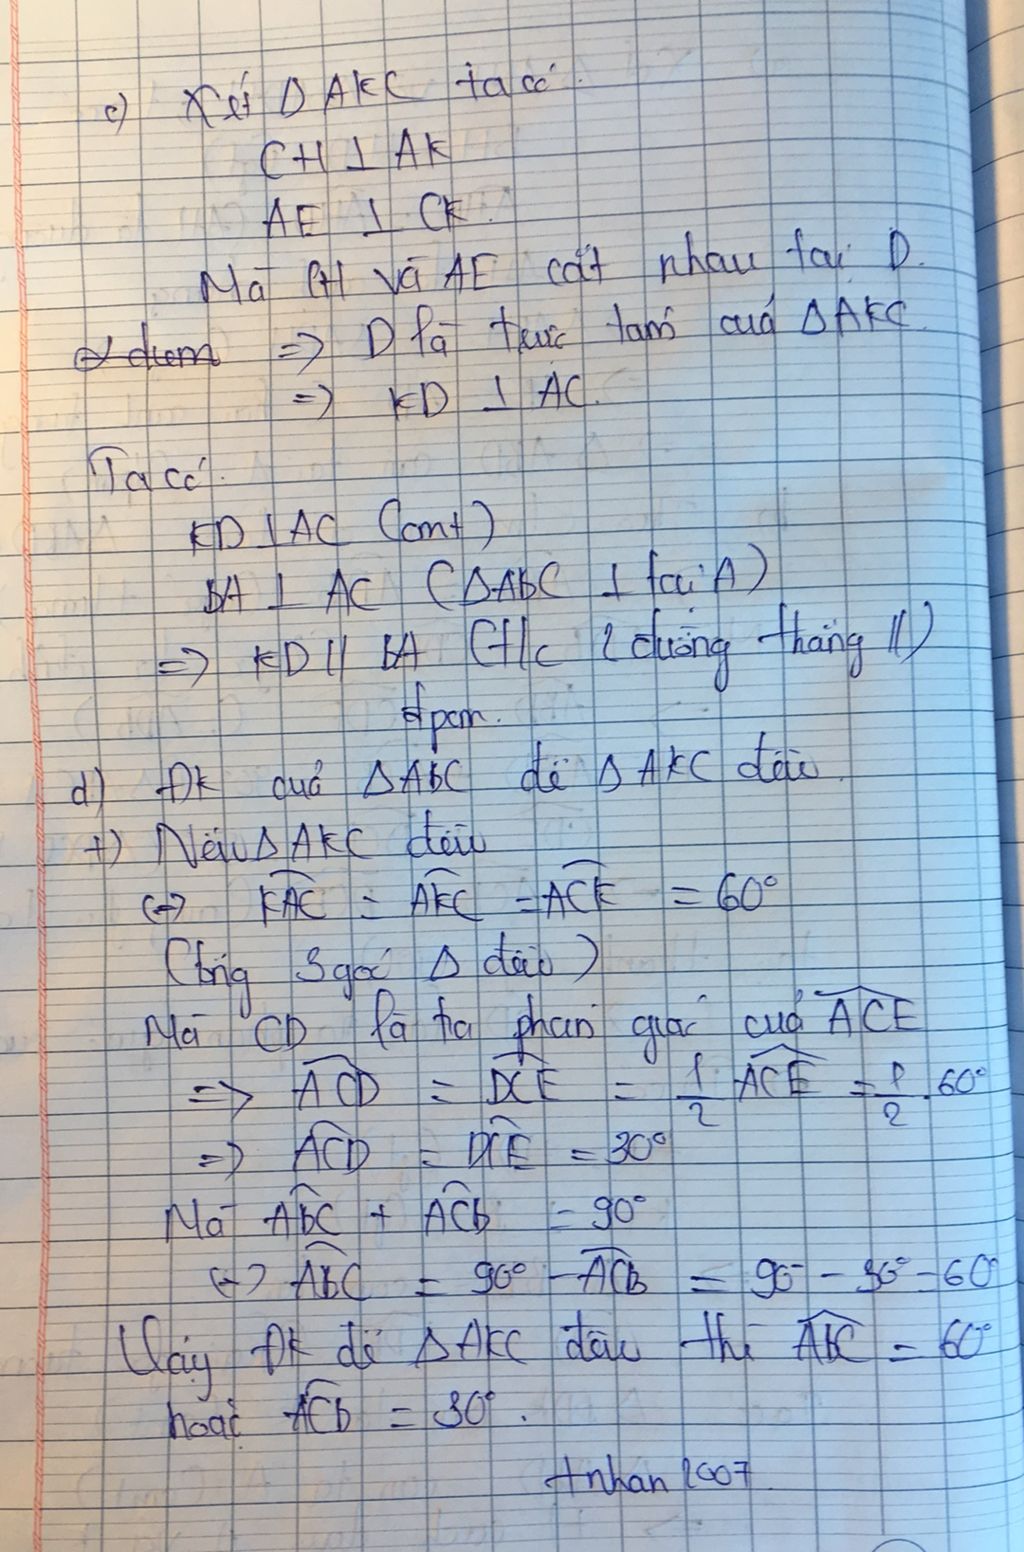 c) Xét Δ AKC ta có:
CH ⊥ AK
AE ⊥ CK.
Mà CH và AE cắt nhau tại D.
⇒ D là trực tâm của ΔAKC.
⇒ KD ⊥ AC.
Ta có:
KD ⊥ AC (cmt)
BA ⊥ AC (ΔABC ⊥ tại A)
⇒ KD // BA (t/c 2 đường thẳng //)
đpcm.
d) ĐK của ΔABC để Δ AKC đều
+) Nếu Δ AKC đều
(⇒) KAC = AKC = ACK = 60°
( 3 góc Δ đều)
Mà CD là tia phân giác của ACE
⇒ ACD = DCE = 1/2 ACE = 1/2 . 60°
⇒ ACD = DCE = 30°
Mà ABC + ACB = 90°
(⇒) ABC = 90° - ACB = 90° - 30° = 60°
Vậy ĐK để Δ AKC đều thì ABC = 60°
hoặc ACB = 30°.
+nhan 2007